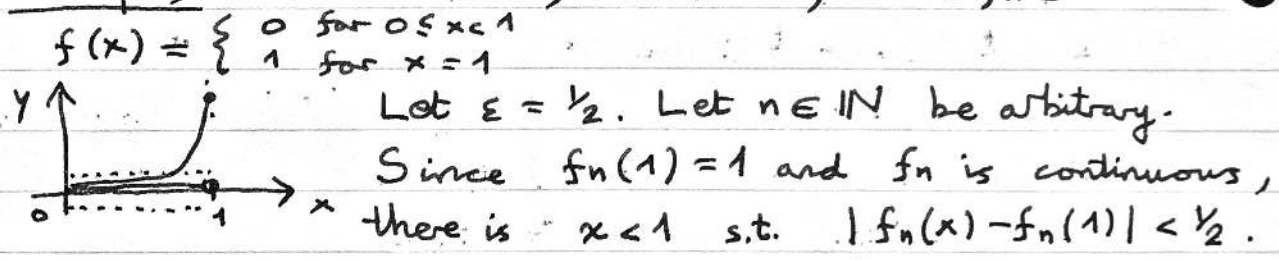 f(x) = { 0 for 0 ≤ x < 1
1 for x = 1
y
Let ε = 1/2. Let n ∈ ℕ be arbitrary.
Since fn(1) = 1 and fn is continuous,
0 1 x
there is x < 1 s.t. | fn(x) - fn(1) | < 1/2.